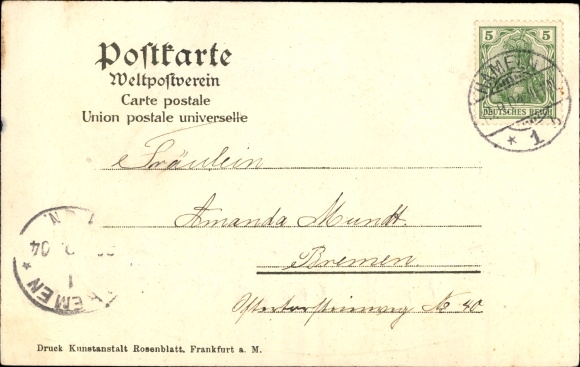 Postkarte
Weltpostverein
Carte postale
Union postale universelle
5 5
DEUTSCHES REICH
HAMELN
* 1 b
Fräulein
Amanda Mundt.
Bremen
Osterthorsteinweg No 40
BREMEN *
1
04
1 - 2 N.
Druck Kunstanstalt Rosenblatt, Frankfurt a. M.